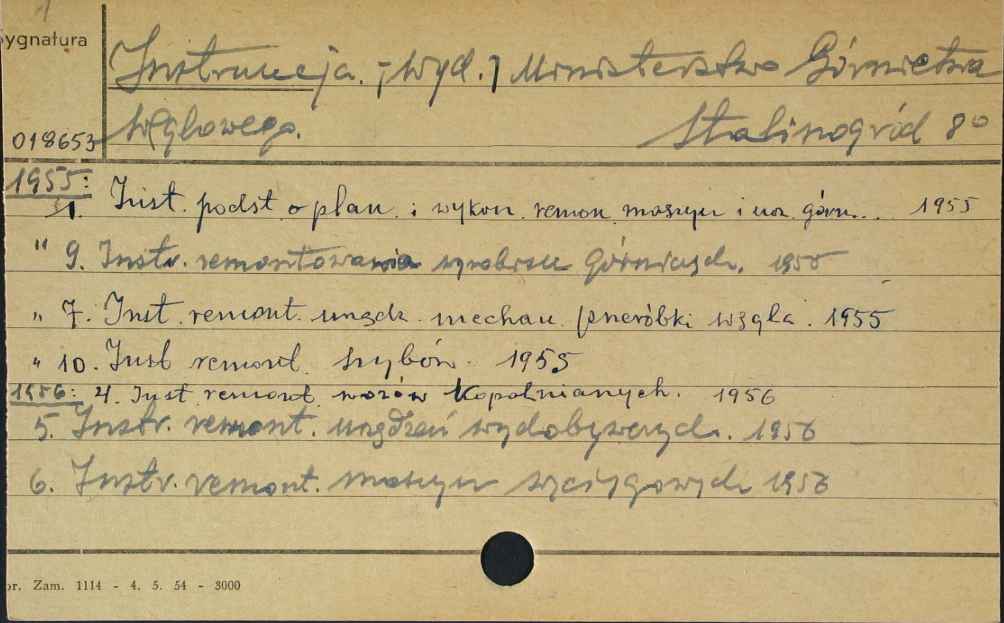 1
ygnatura
Instrukcja. [wyd.] Ministerstwo Górnictwa
018653 Węglowego. Stalinogród 8°
1955:
1. Inst. podst o plan. i wykon. remon. maszyn i urz. górn... 1955
" 9. Instr. remontowania wyrobisk Górniczych. 1955
" 7. Inst. remont. urządz. mechan. przeróbki węgla. 1955
" 10. Inst remont. szybów. 1955
1956: 4. Inst remont wozów kopalnianych. 1956
5. Instr. remont. urządzeń wydobywczych. 1956
6. Instr. remont. maszyn wyciągowych 1956
or. Zam. 1114 - 4. 5. 54 - 3000